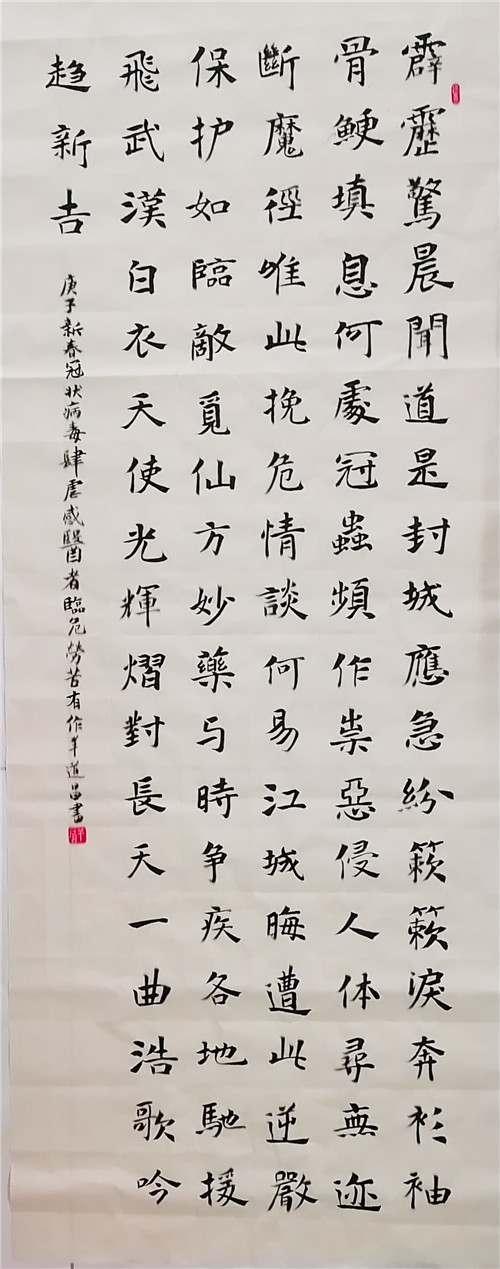 霹靂驚晨聞道是封城應急紛簌簌淚奔衫袖
骨鯁填息何處冠蟲頻作祟惡侵人体尋無迹
斷魔徑唯此挽危情談何易江城晦遭此逆嚴
保护如臨敵覓仙方妙藥与時争疾各地馳援
飛武漢白衣天使光輝熠對長天一曲浩歌吟
趋新吉
庚子新春冠状病毒肆虐感醫者臨危勞苦有作羊道昌書